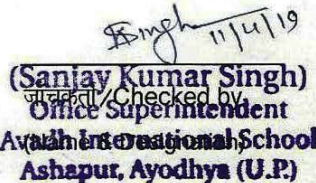 Singh 11/4/19
(Sanjay Kumar Singh)
जाँचकर्ता/Checked by
Office Superintendent
(Name & Designation)
Avadh International School
Ashapur, Ayodhya (U.P.)